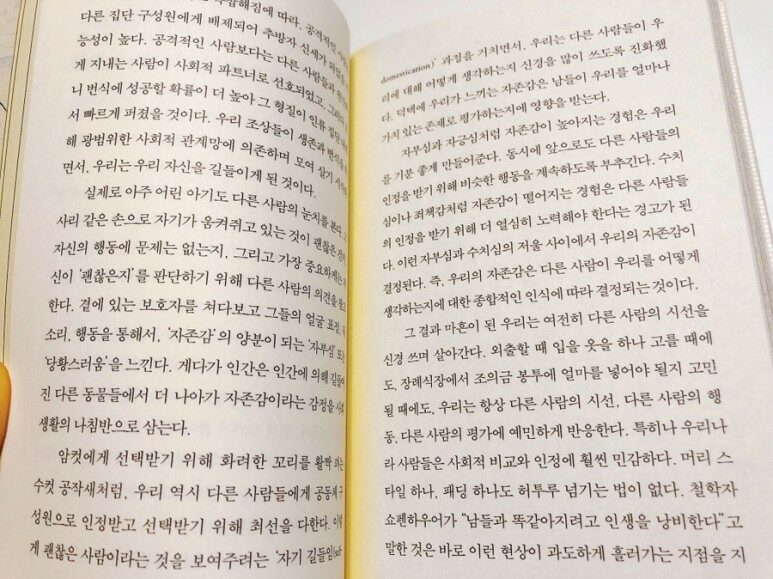 해짐에 따라. 공격적인
다른 집단 구성원에게 배제되어 추방자 신세가
능성이 높다. 공격적인 사람보다는 다른 사람들과
게 지내는 사람이 사회적 파트너로 선호되었고,
니 번식에 성공할 확률이 더 높아 그 형질이 인류 집단
서 빠르게 퍼졌을 것이다. 우리 조상들이 생존과
해 광범위한 사회적 관계망에 의존하며 모여 살기
면서, 우리는 우리 자신을 길들이게 된 것이다.
실제로 아주 어린 아기도 다른 사람의 눈치를 본다.
사리 같은 손으로 자기가 움켜쥐고 있는 것이 괜찮은
자신의 행동에 문제는 없는지, 그리고 가장 중요하게는
신이 '괜찮은지'를 판단하기 위해 다른 사람의 의견을
한다. 곁에 있는 보호자를 쳐다보고 그들의 얼굴 표정,
소리, 행동을 통해서, '자존감'의 양분이 되는 '자부심'
'당황스러움'을 느낀다. 게다가 인간은 인간에 의해
진 다른 동물들에서 더 나아가 자존감이라는 감정을
생활의 나침반으로 삼는다.
암컷에게 선택받기 위해 화려한 꼬리를 활짝 펴는
수컷 공작새처럼, 우리 역시 다른 사람들에게 공동체 구
성원으로 인정받고 선택받기 위해 최선을 다한다. 이렇
게 괜찮은 사람이라는 것을 보여주려는 '자기 길들임
domestication)' 과정을 거치면서, 우리는 다른 사람들이 우
리에 대해 어떻게 생각하는지 신경을 많이 쓰도록 진화했
다. 덕택에 우리가 느끼는 자존감은 남들이 우리를 얼마나
가치 있는 존재로 평가하는지에 영향을 받는다.
자부심과 자긍심처럼 자존감이 높아지는 경험은 우리
를 기분 좋게 만들어준다. 동시에 앞으로도 다른 사람들의
인정을 받기 위해 비슷한 행동을 계속하도록 부추긴다. 수치
심이나 죄책감처럼 자존감이 떨어지는 경험은 다른 사람들
의 인정을 받기 위해 더 열심히 노력해야 한다는 경고가 된
다. 이런 자부심과 수치심의 저울 사이에서 우리의 자존감이
결정된다. 즉, 우리의 자존감은 다른 사람이 우리를 어떻게
생각하는지에 대한 종합적인 인식에 따라 결정되는 것이다.
그 결과 마흔이 된 우리는 여전히 다른 사람의 시선을
신경 쓰며 살아간다. 외출할 때 입을 옷을 하나 고를 때에
도, 장례식장에서 조의금 봉투에 얼마를 넣어야 될지 고민
될 때에도, 우리는 항상 다른 사람의 시선, 다른 사람의 행
동, 다른 사람의 평가에 예민하게 반응한다. 특히나 우리나
라 사람들은 사회적 비교와 인정에 훨씬 민감하다. 머리 스
타일 하나, 패딩 하나도 허투루 넘기는 법이 없다. 철학자
쇼펜하우어가 "남들과 똑같아지려고 인생을 낭비한다"고
말한 것은 바로 이런 현상이 과도하게 흘러가는 지점을 지